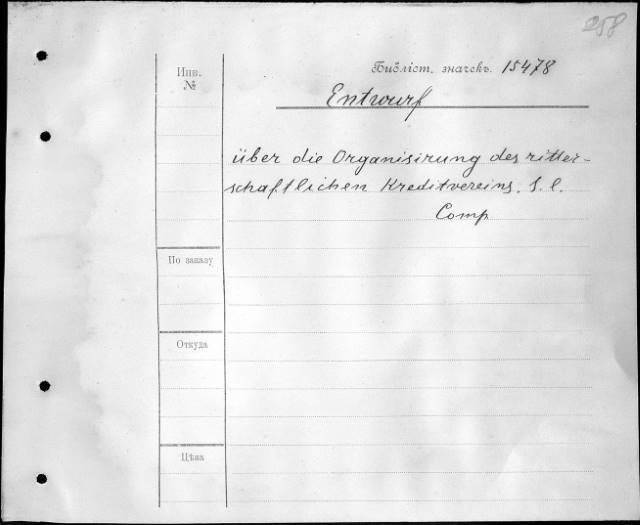 258
Инв. №
Библіот. значекъ. 15478
Entwurf
über die Organisirung des ritter-
schaftlichen Kreditvereins. S. l.
Comp
По заказу
Откуда
Цѣна